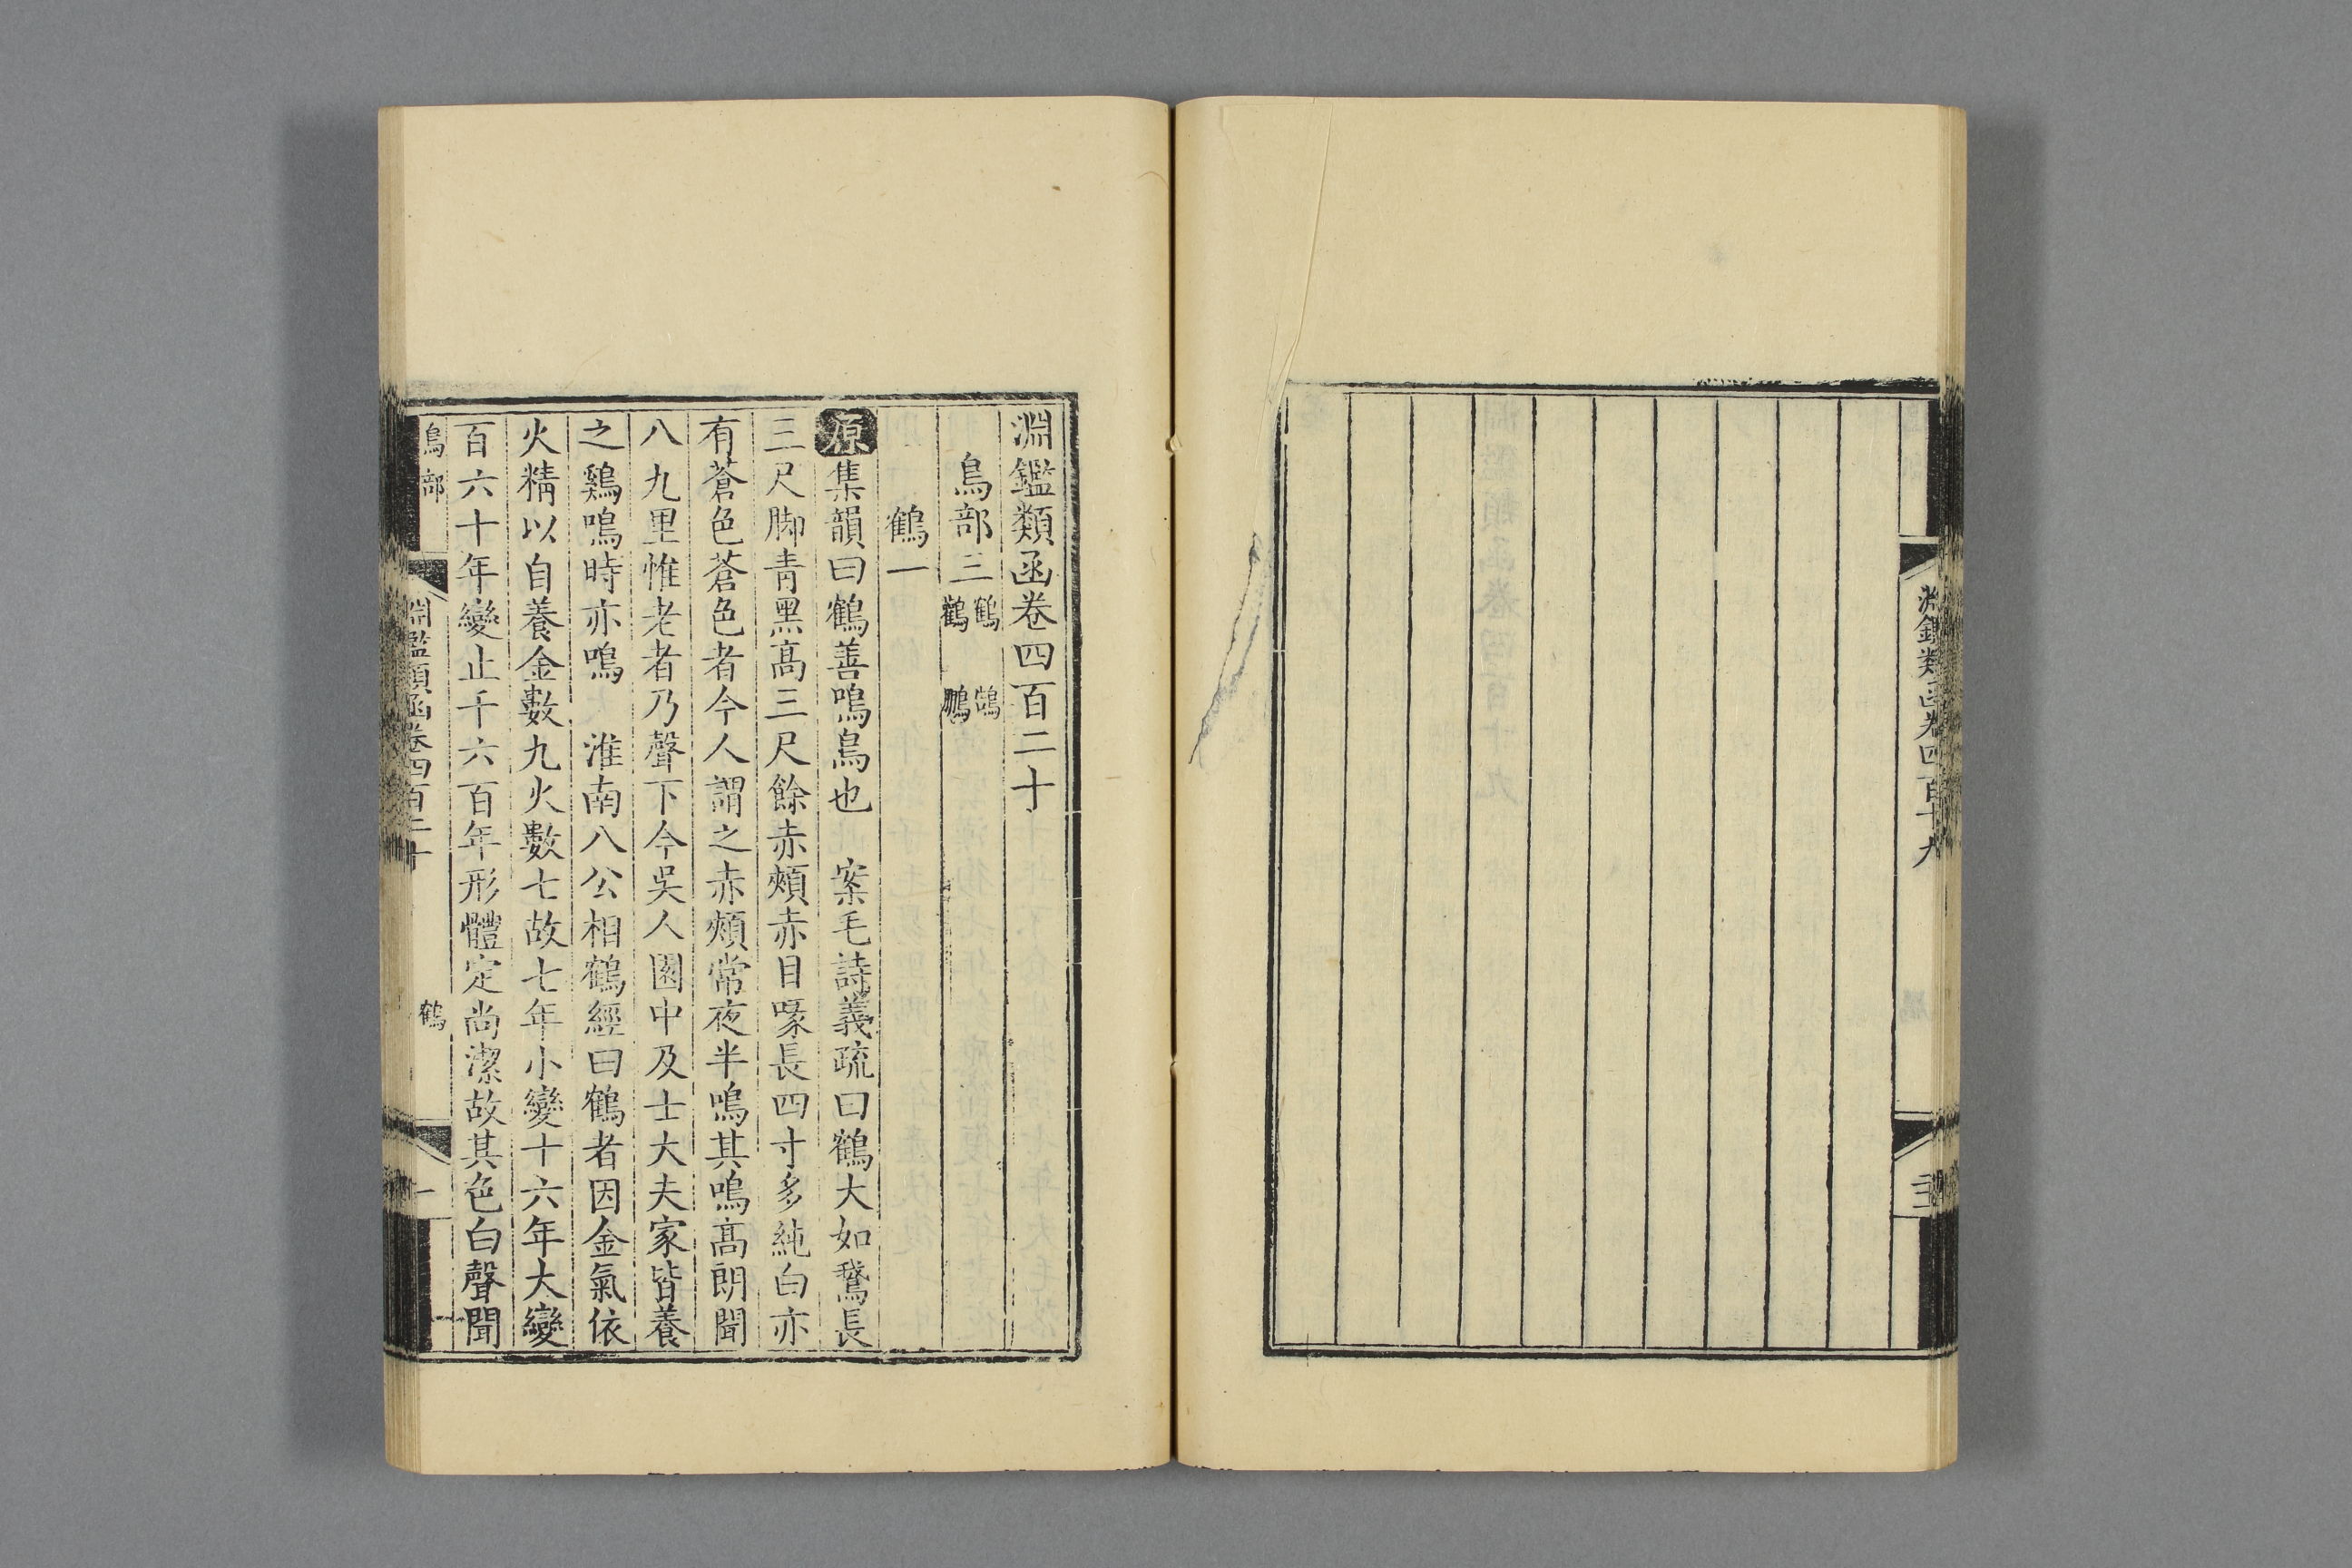 淵鑑類函卷四百十九
淵鑑類函卷四百二十
鳥部三 鶴 鵠 鸛 鵬
鶴一
原集韻曰鶴善鳴鳥也 案毛詩義疏曰鶴大如鵞長
三尺脚青黑高三尺餘赤頰赤目喙長四寸多純白亦
有蒼色蒼色者今人謂之赤頰常夜半鳴其鳴高朗聞
八九里惟老者乃聲下今吳人園中及士大夫家皆養
之鷄鳴時亦鳴 淮南八公相鶴經曰鶴者因金氣依
火精以自養金數九火數七故七年小變十六年大變
百六十年變止千六百年形體定尚潔故其色白聲聞
鳥部 淵鑑類函卷四百二十 鶴 一